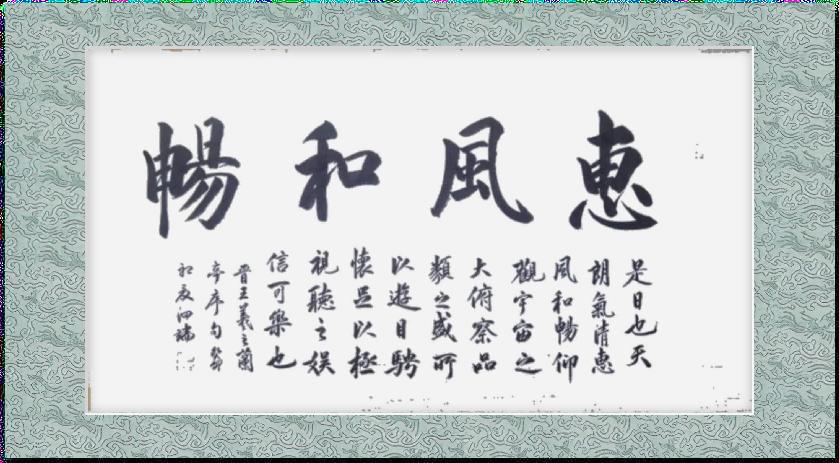 惠風和暢
是日也天
朗氣清惠
風和暢仰
觀宇宙之
大俯察品
類之盛所
以遊目騁
懷足以極
視聽之娛
信可樂也
晉王羲之蘭
亭序句